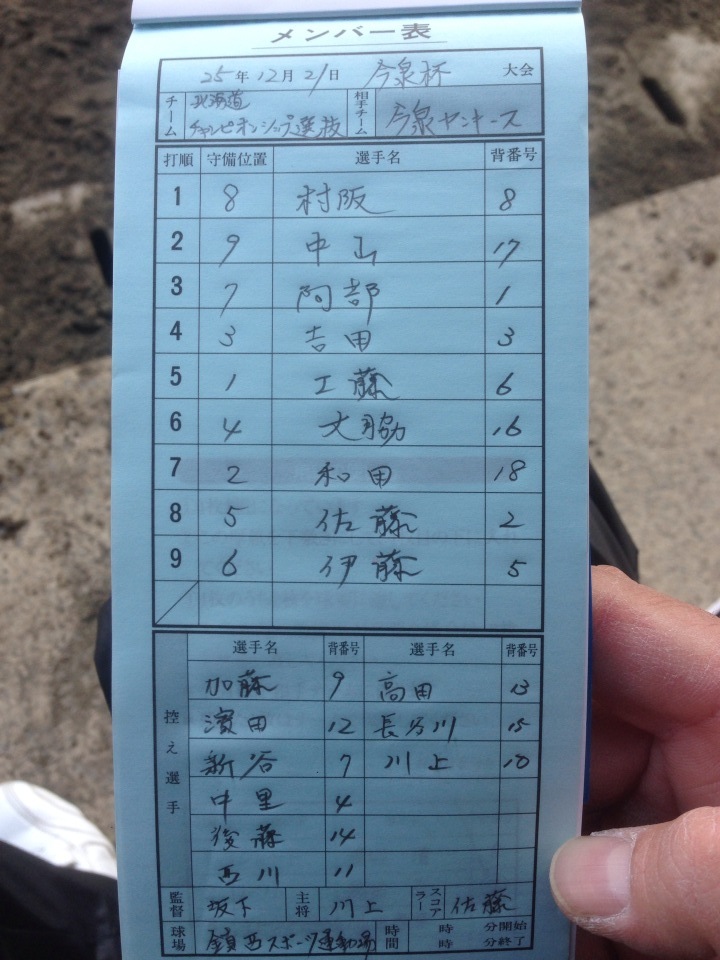 メンバー表
25年12月21日 今泉杯 大会
チーム 北海道チャンピオンシップ選抜 相手チーム 今泉ヤンキース
打順 守備位置 選手名 背番号
1 8 村阪 8
2 9 中山 17
3 7 阿部 1
4 3 吉田 3
5 1 工藤 6
6 4 大脇 16
7 2 和田 18
8 5 佐藤 2
9 6 伊藤 5
控え選手
選手名 背番号 選手名 背番号
加藤 9 高田 13
濱田 12 長谷川 15
新谷 7 川上 10
中里 4
後藤 14
西川 11
監督 坂下 主将 川上 スコアラー 佐藤
球場 鎮西スポーツ運動場 時間 時 分開始
時 分終了